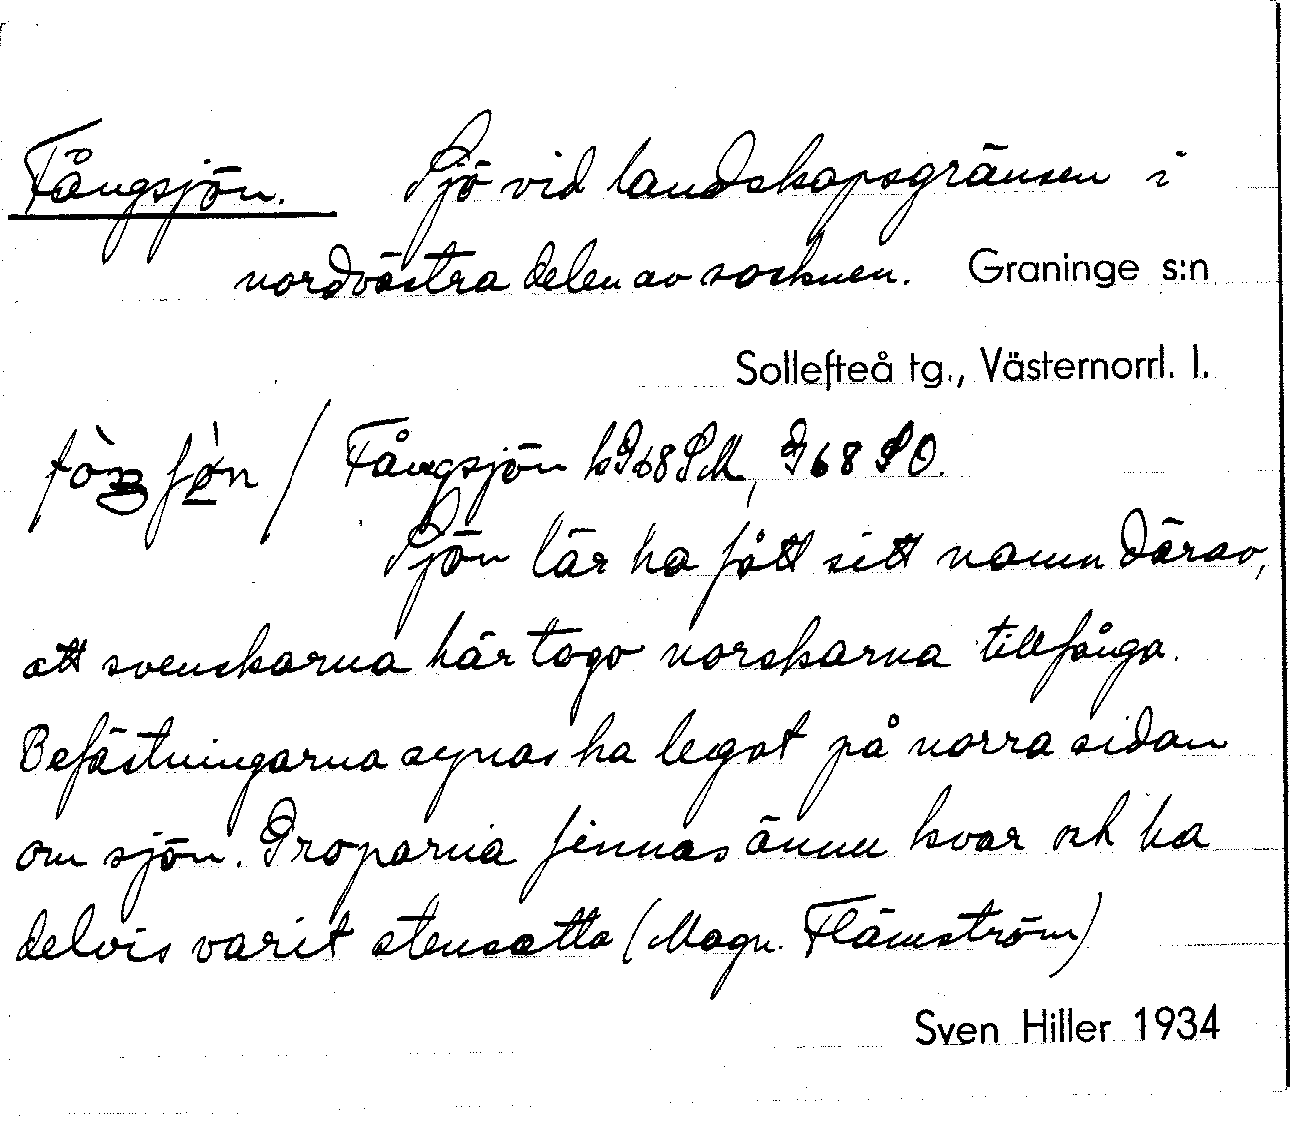 Fångsjön. Sjö vid landskapsgränsen i
nordvästra delen av socknen. Graninge s:n
Sollefteå tg., Västernorrl. l.
/ Fångsjön k968SM, 968SO.
Sjön lär ha fått sitt namn därav,
att svenskarna här togo norskarna tillfånga.
Befästningarna synas ha legat på norra sidan
om sjön. Groparna finnas ännu kvar och ha
delvis varit stensatta (Magn. Flämström)
Sven Hiller 1934